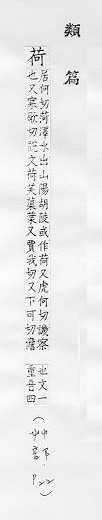 類篇
荷
居何切菏澤水出山陽胡陵或作荷又虎何切譏察
也又寒歌切說文荷芙蕖葉又賈我切又下可切儋
也文一
重音四
P.22